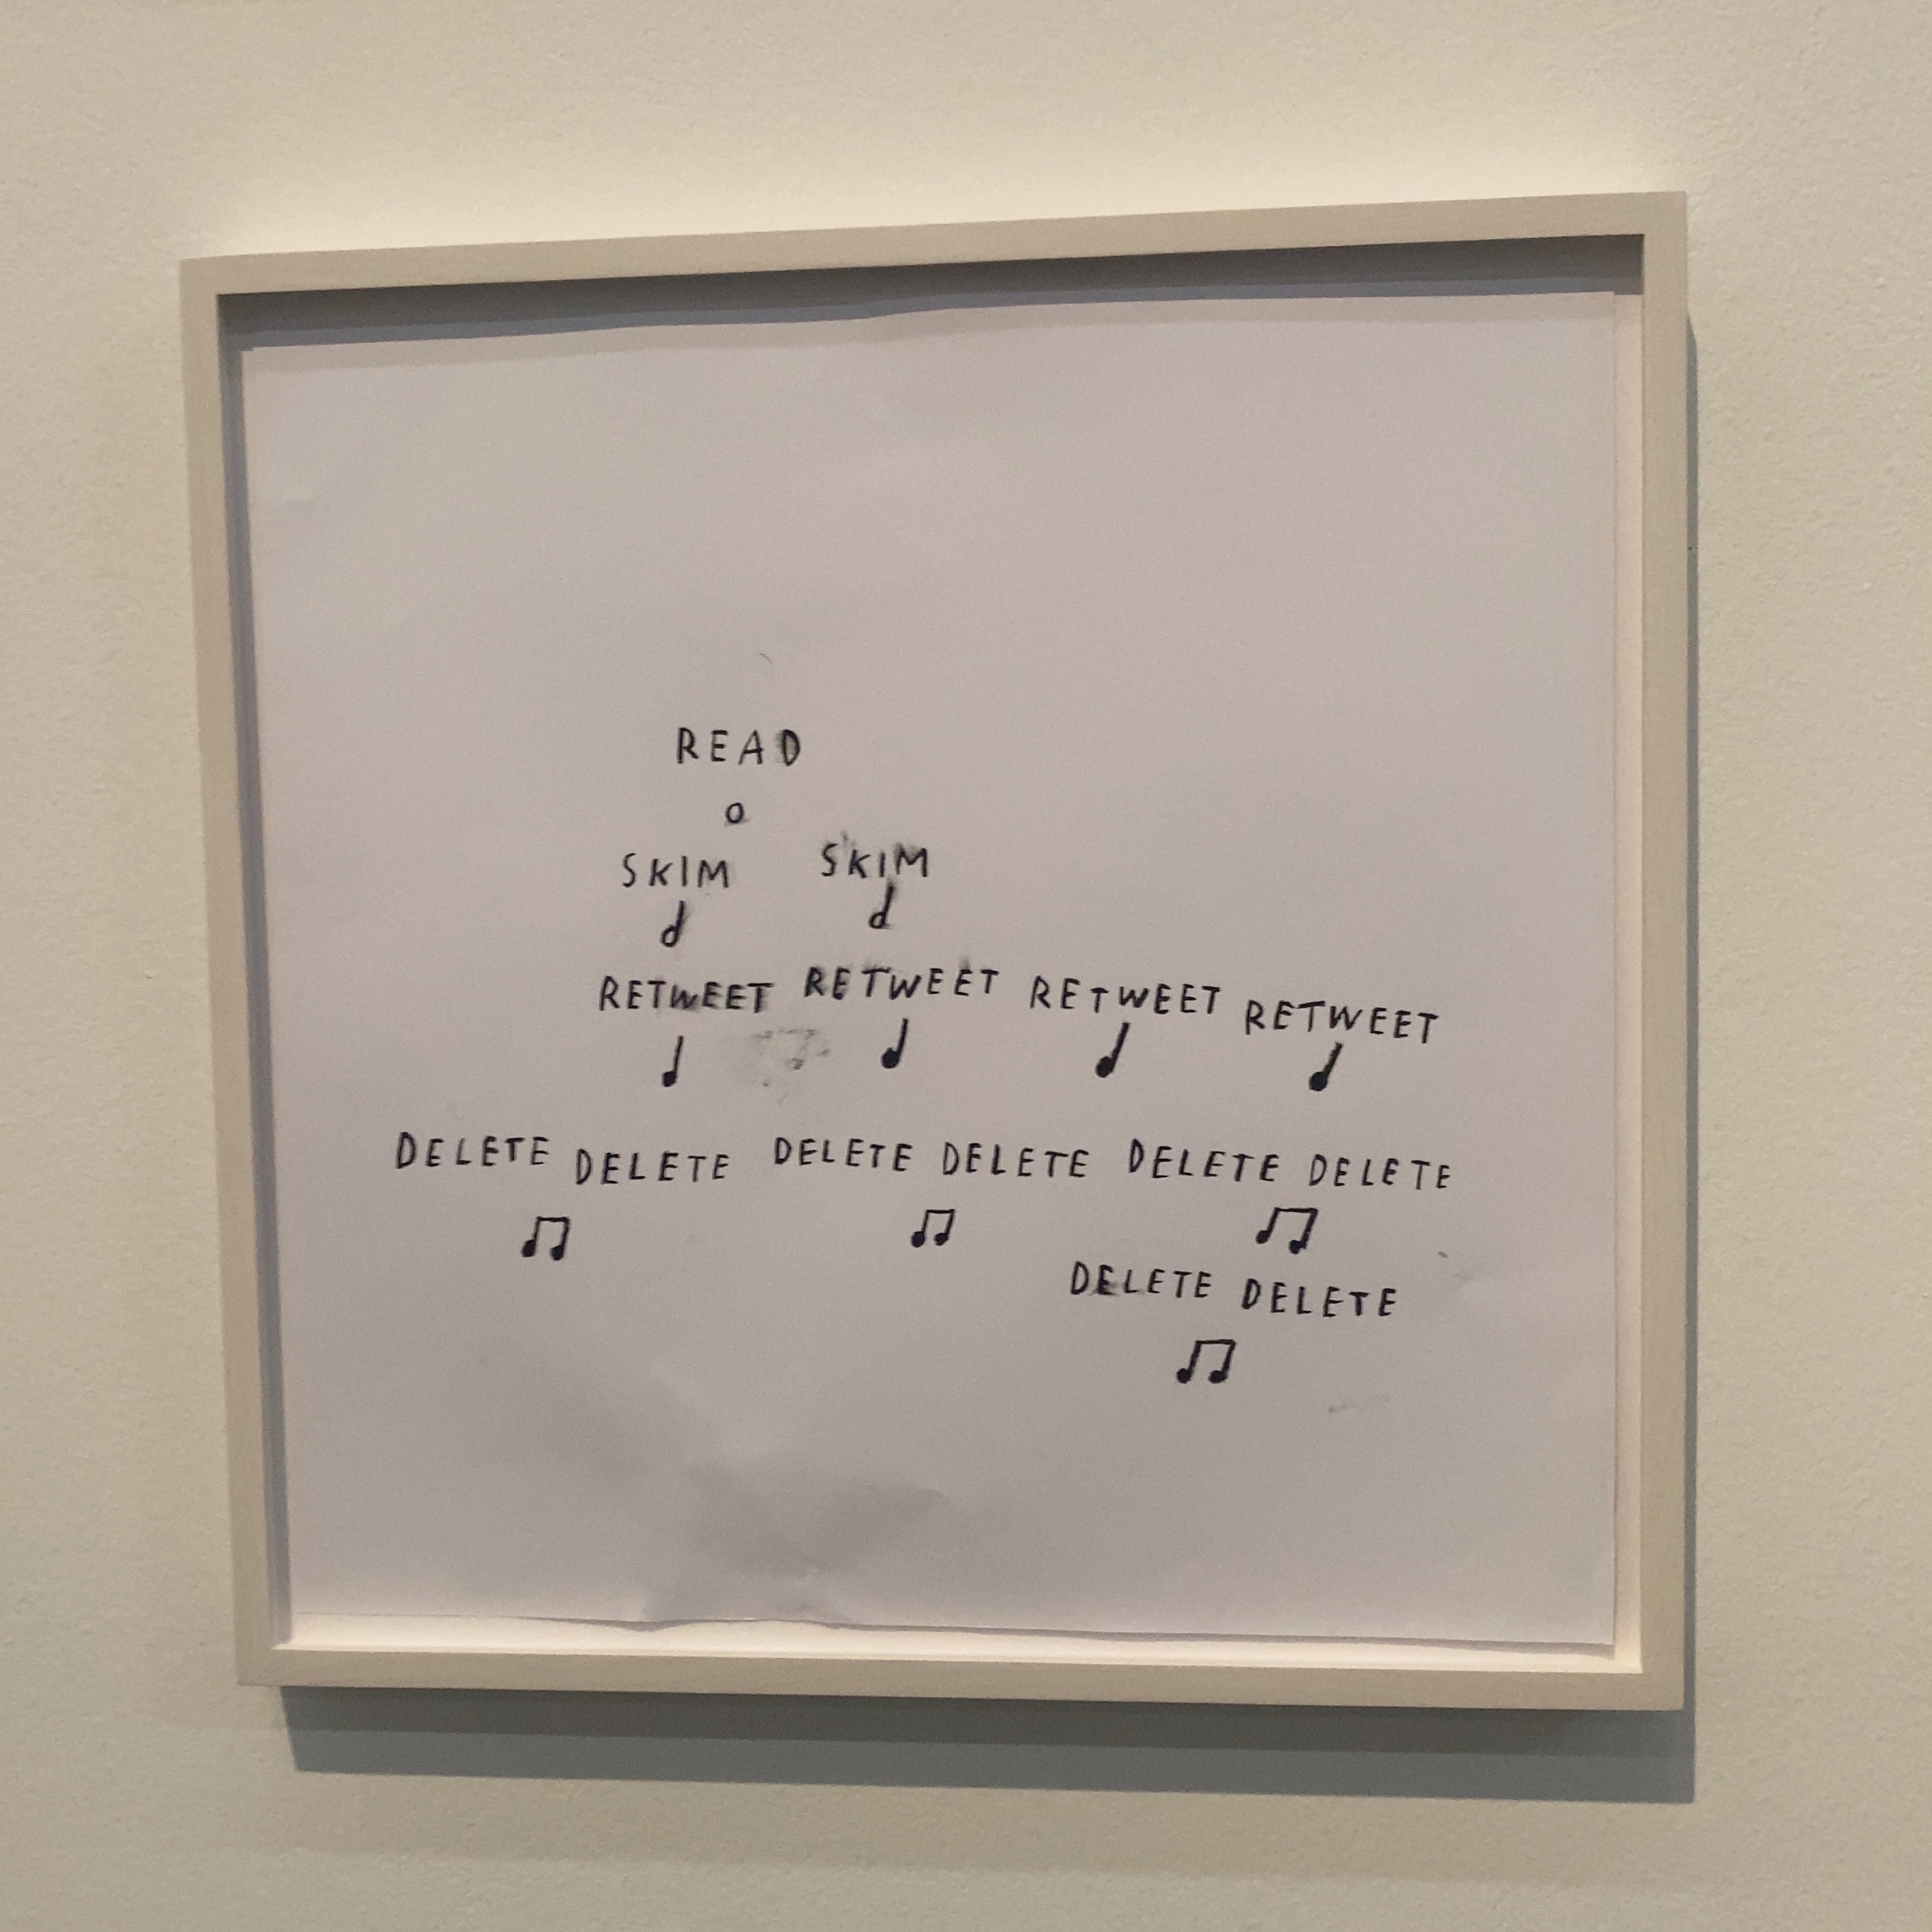 READ
SKIM SKIM
RETWEET RETWEET RETWEET RETWEET
DELETE DELETE DELETE DELETE DELETE DELETE
DELETE DELETE